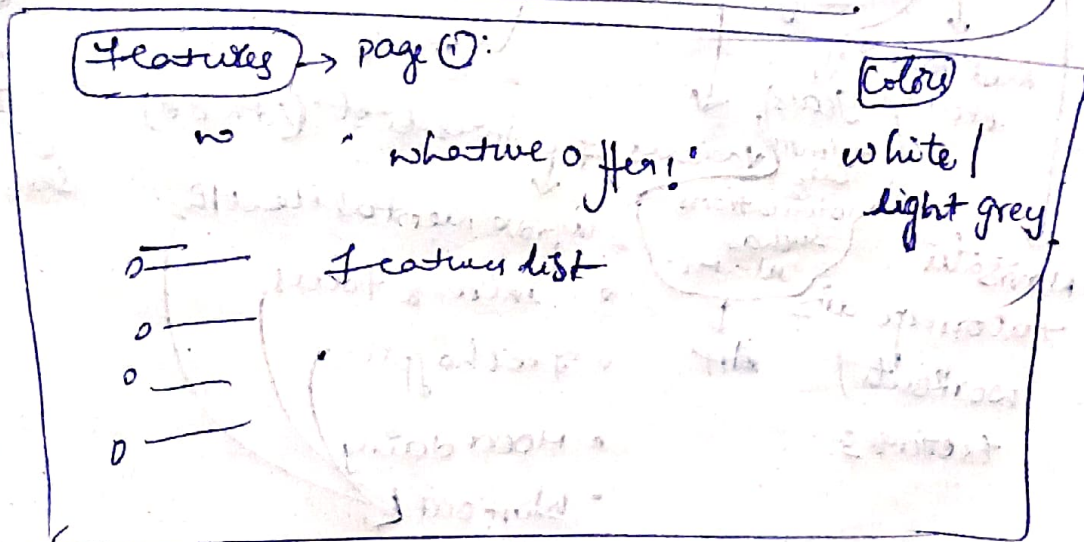 Features → page ①:
Colors
"what we offer!"
white /
light grey
Features list